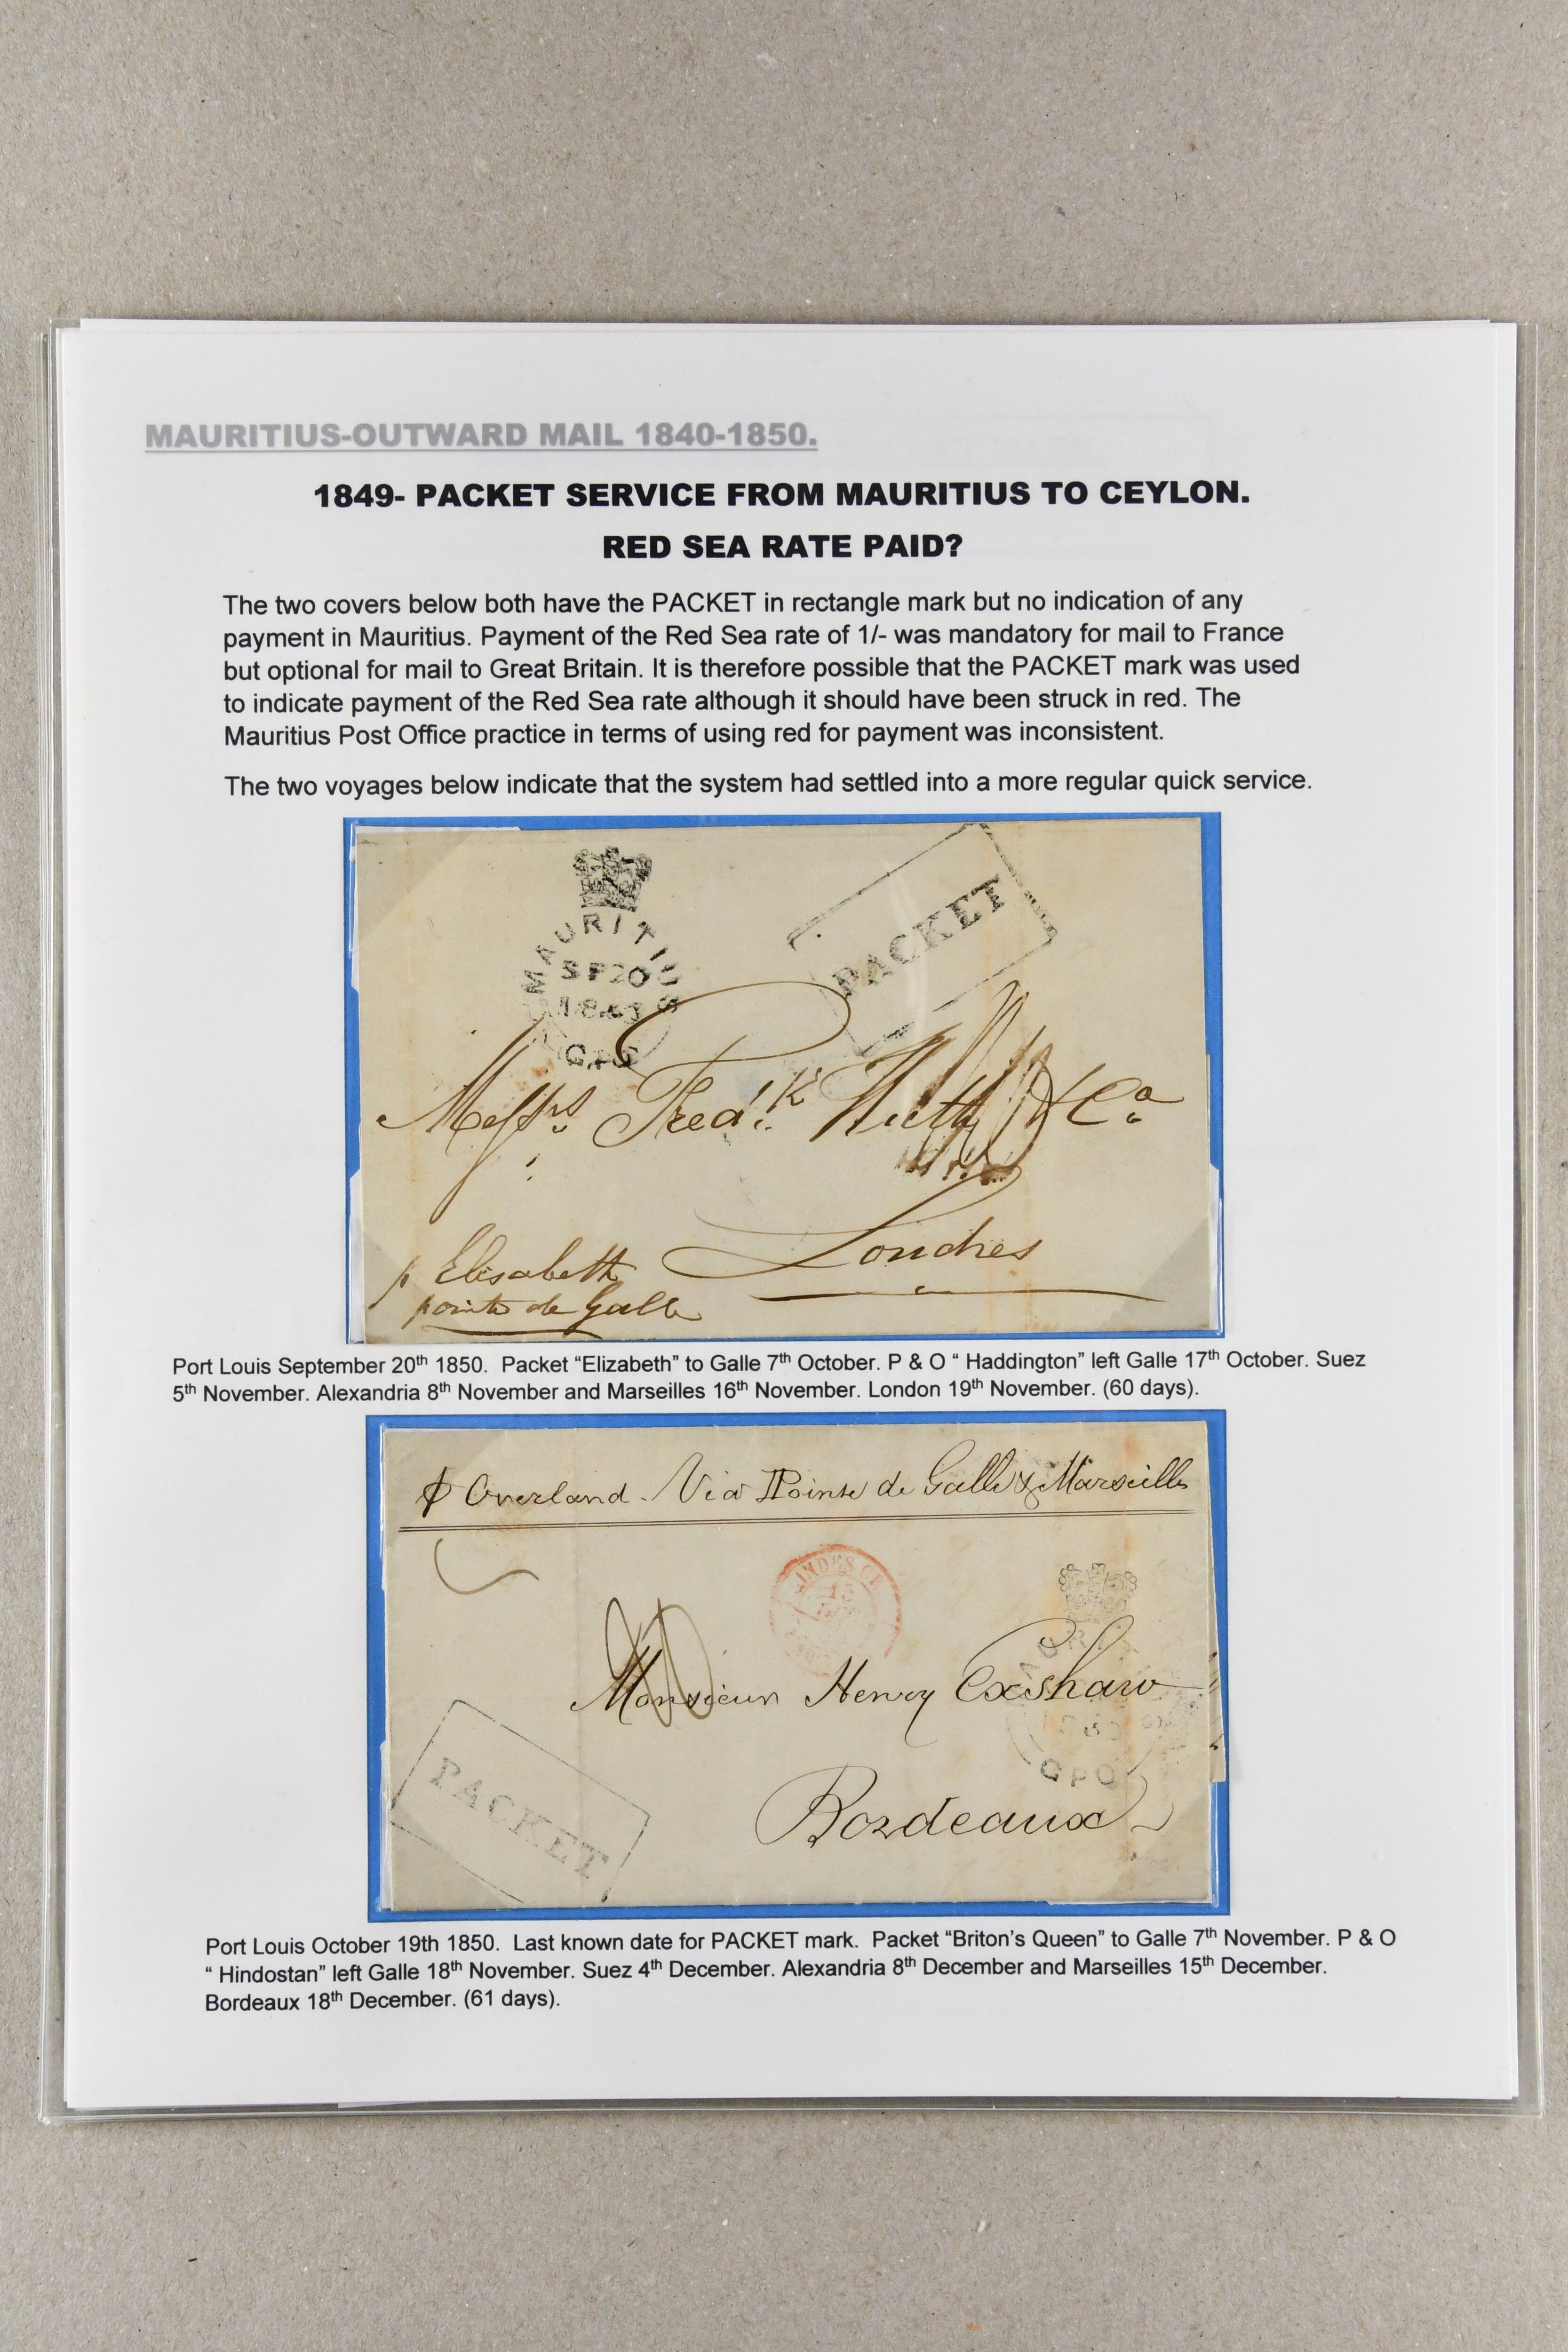 MAURITIUS-OUTWARD MAIL 1840-1850.
1849- PACKET SERVICE FROM MAURITIUS TO CEYLON.
RED SEA RATE PAID?
The two covers below both have the PACKET in rectangle mark but no indication of any
payment in Mauritius. Payment of the Red Sea rate of 1/- was mandatory for mail to France
but optional for mail to Great Britain. It is therefore possible that the PACKET mark was used
to indicate payment of the Red Sea rate although it should have been struck in red. The
Mauritius Post Office practice in terms of using red for payment was inconsistent.
The two voyages below indicate that the system had settled into a more regular quick service.
MAURITIUS
SP20
GPO
PACKET
Messrs Fredk Huth & Co
Londres
p Elisabeth
pointe de Galle
Port Louis September 20th 1850. Packet “Elizabeth” to Galle 7th October. P & O “ Haddington” left Galle 17th October. Suez
5th November. Alexandria 8th November and Marseilles 16th November. London 19th November. (60 days).
p Overland. Via Pointe de Galle & Marseille
INDES OR
15
Monsieur Henry Exshaw
GPO
PACKET
Bordeaux
Port Louis October 19th 1850. Last known date for PACKET mark. Packet “Briton’s Queen” to Galle 7th November. P & O
“ Hindostan” left Galle 18th November. Suez 4th December. Alexandria 8th December and Marseilles 15th December.
Bordeaux 18th December. (61 days).